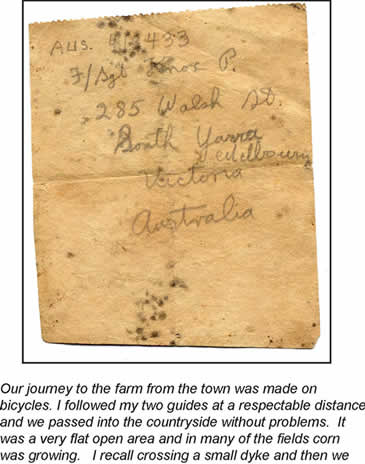 Aus. 433
F/Sgt Knox P.
285 Walsh St.
South Yarra
Melbourne
Victoria
Australia
Our journey to the farm from the town was made on
bicycles. I followed my two guides at a respectable distance
and we passed into the countryside without problems.  It
was a very flat open area and in many of the fields corn
was growing.   I recall crossing a small dyke and then we